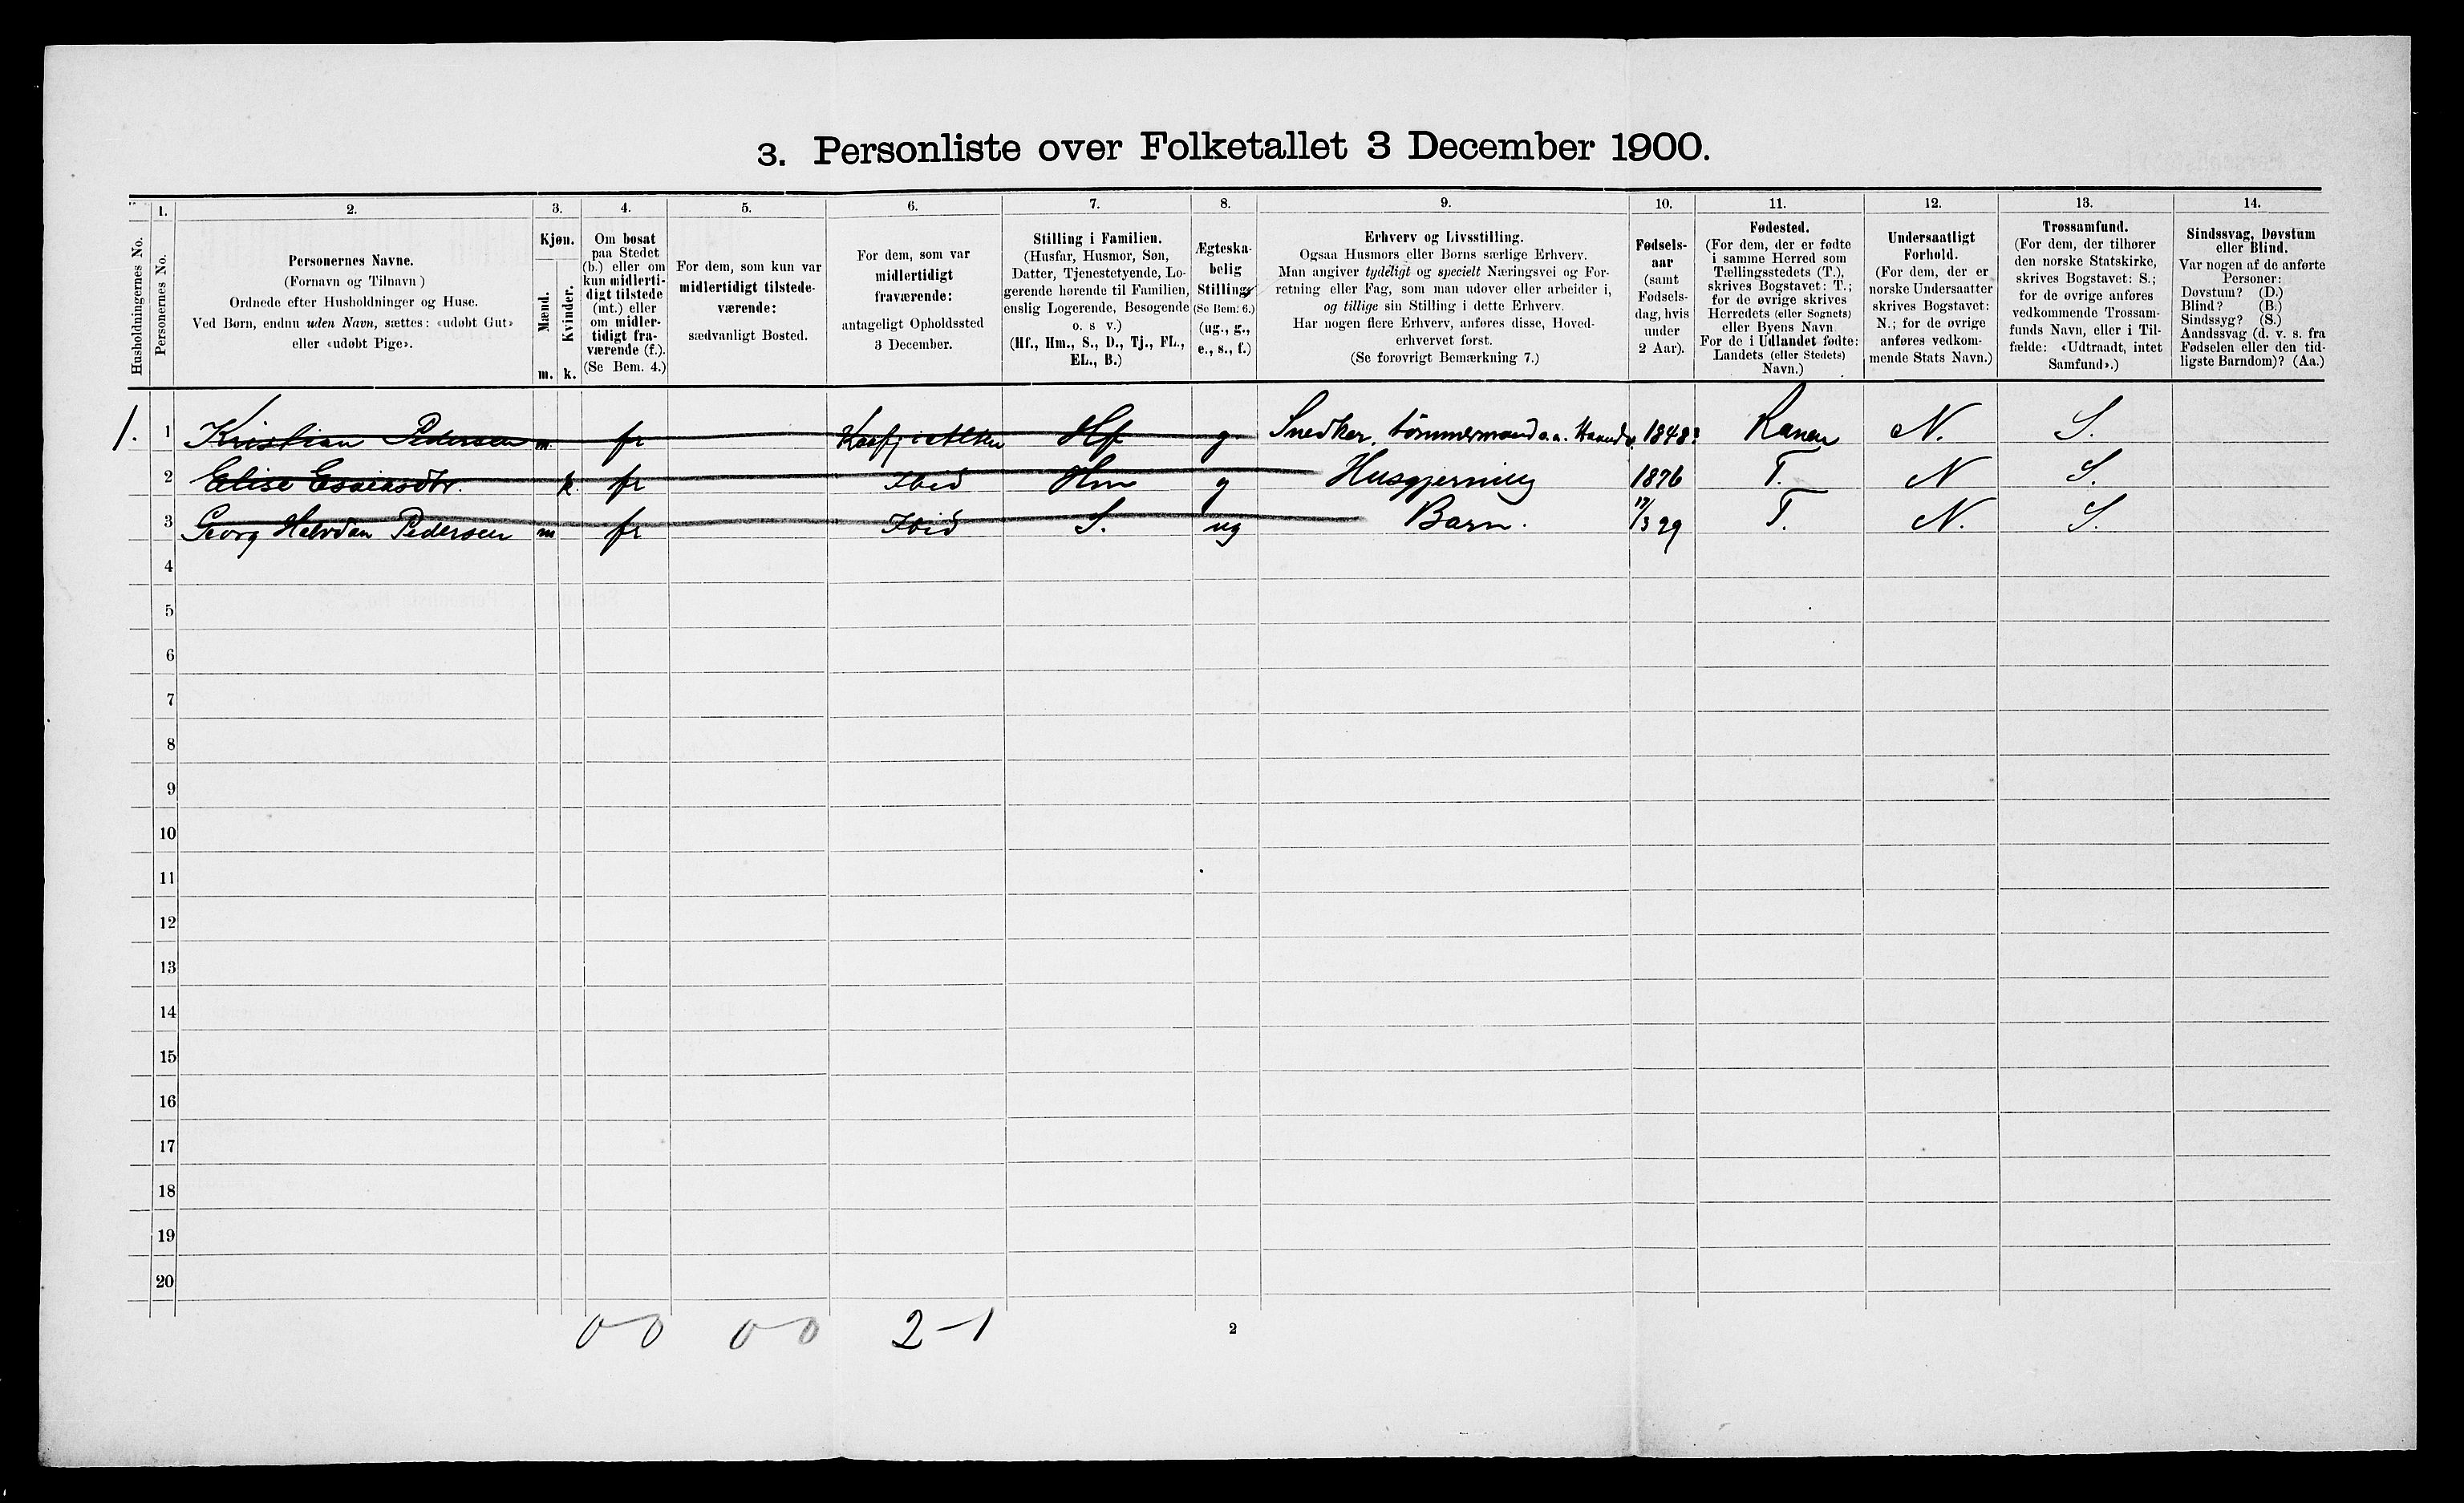 3. Personliste over Folketallet 3 December 1900.
1. 2. 3. 4. 5. 6. 7. 8. 9. 10. 11. 12. 13. 14.
Husholdningernes No.
Personernes No.
Personernes Navne.
(Fornavn og Tilnavn)
Ordnede efter Husholdninger og Huse.
Ved Børn, endnu uden Navn, sættes: «udøbt Gut»
eller «udøbt Pige».
Kjøn.
Mænd.
Kvinder.
m. k.
Om bosat
paa Stedet
(b.) eller om
kun midlerti-
digt tilstede
(mt.) eller
om midler-
tidigt fra-
værende (f.).
(Se Bem. 4.)
For dem, som kun var
midlertidigt tilstede-
værende:
sædvanligt Bosted.
For dem, som var
midlertidigt
fraværende:
antageligt Opholdssted
3 December.
Stilling i Familien.
(Husfar, Husmor, Søn,
Datter, Tjenestetyende, Lo-
gerende hørende til Familien,
enslig Logerende, Besøgende
o. s v.)
(Hf., Hm., S., D., Tj., FL.,
EL., B.)
Ægteska-
belig
Stilling.
(Se Bem. 6.)
(ug., g.,
e., s., f.)
Erhverv og Livsstilling.
Ogsaa Husmors eller Børns særlige Erhverv.
Man angiver tydeligt og specielt Næringsvei og For-
retning eller Fag, som man udøver eller arbeider i,
og tillige sin Stilling i dette Erhverv.
Har nogen flere Erhverv, anføres disse, Hoved-
erhvervet først.
(Se forøvrigt Bemærkning 7.)
Fødsels-
aar
(samt
Fødsels-
dag, hvis
under
2 Aar).
Fødested.
(For dem, der er fødte
i samme Herred som
Tællingsstedets (T.),
skrives Bogstavet: T.;
for de øvrige skrives
Herredets (eller Sognets)
eller Byens Navn.
For de i Udlandet fødte:
Landets (eller Stedets)
Navn.)
Undersaatligt
Forhold.
(For dem, der er
norske Undersaatter
skrives Bogstavet:
N.; for de øvrige
anføres vedkom-
mende Stats Navn.)
Trossamfund.
(For dem, der tilhører
den norske Statskirke,
skrives Bogstavet: S.;
for de øvrige anføres
vedkommende Trossam-
funds Navn, eller i Til-
fælde: «Udtraadt, intet
Samfund».)
Sindssvag, Døvstum
eller Blind.
Var nogen af de anførte
Personer:
Døvstum? (D.)
Blind? (B.)
Sindssyg? (S.)
Aandssvag (d. v. s. fra
Fødselen eller den tid-
ligste Barndom)? (Aa.)
1. 1 Kristian Pedersen m. fr Hf g Snedker, tømmermand o.a. 1848? Ranen N. S.
2 Elise Esaiasdtr. k. fr Ibid Hm g Husgjerning 1876 T. N S.
3 Georg Halvdan Pedersen m fr Ibid S. ug Barn. 17/3 99 T. N. S.
4
5
6
7
8
9
10
11
12
13
14
15
16
17
18
19
20
0 0 0 0 2-1
2